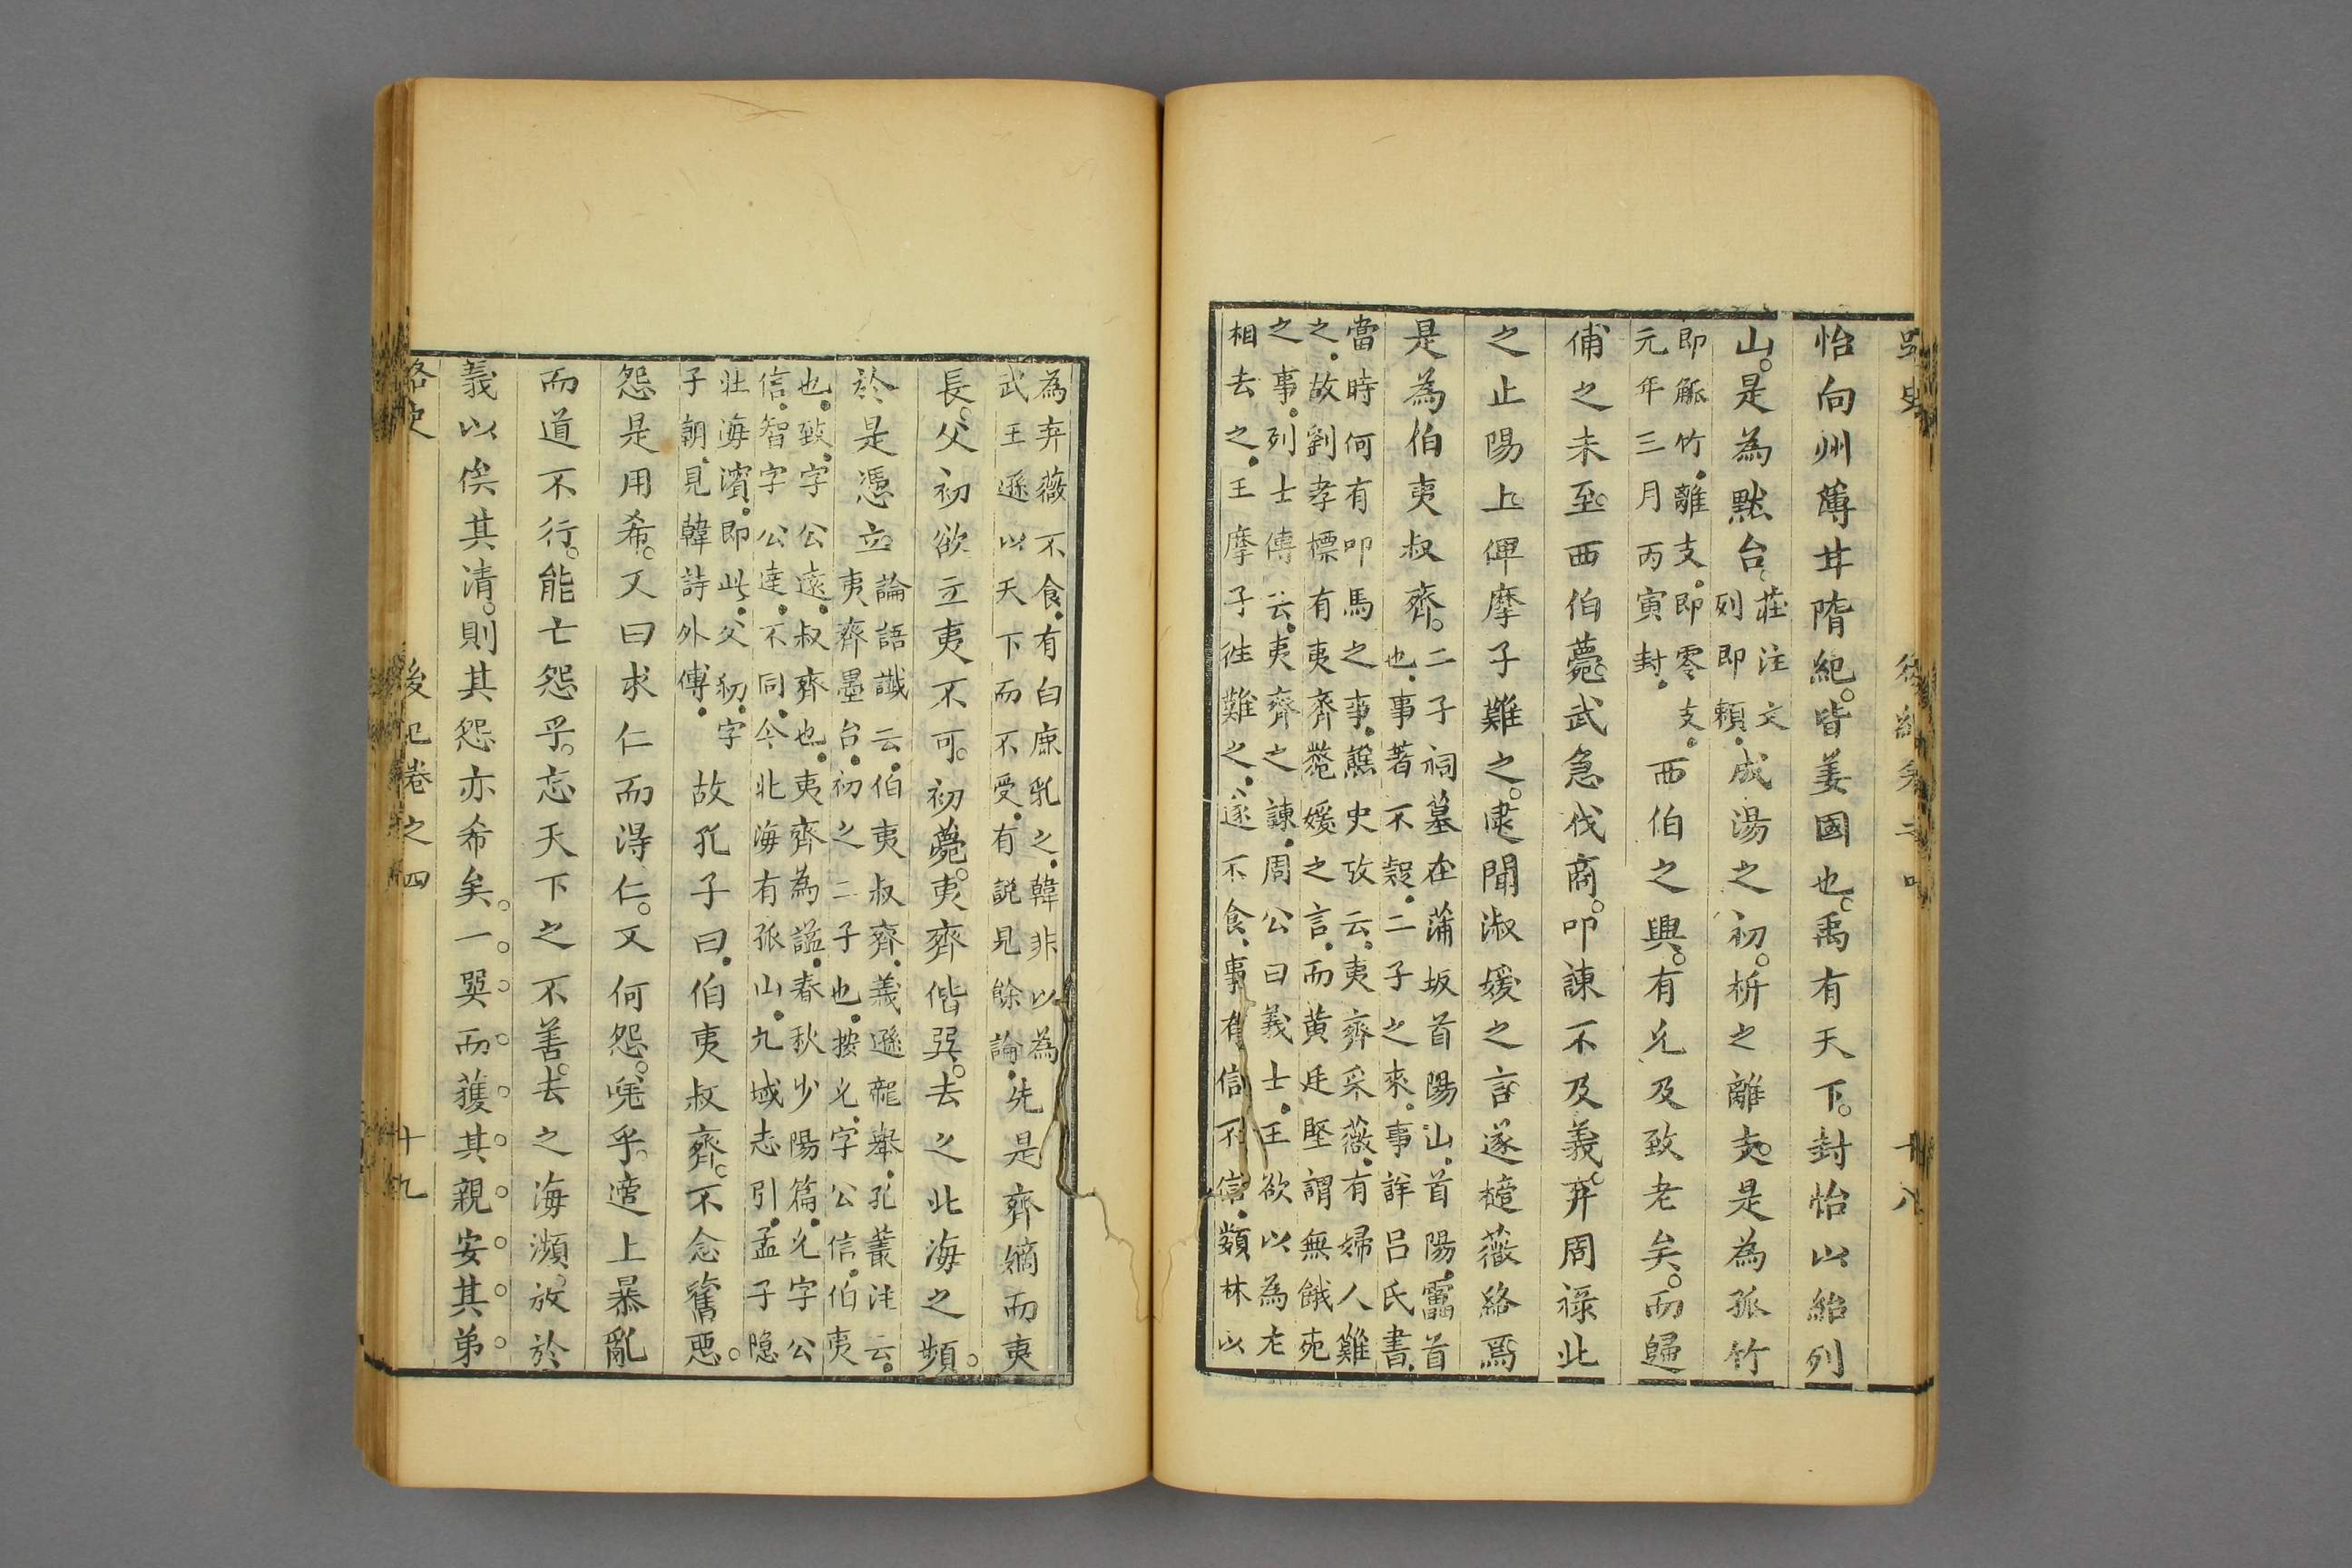 怡向州薄甘隋紀。皆姜國也。禹有天下。封怡以紹列
山。是為默台。莊注文列即賴。成湯之初。析之離支。是為孤竹
即觚竹。離支。即零支。元年三月丙寅封。西伯之興。有允及致老矣。而歸
俌之未至。西伯薨。武急伐商。叩諫不及義。弃周祿。此
之止陽上。俾摩子難之。逮聞淑媛之言。遂榼薇絡焉
是為伯夷叔齊。二子祠墓在蒲坂首陽山。首陽。靁首也。事著不疑。二子之來。事詳呂氏書。
當時何有叩馬之事。譙史攷云。夷齊采薇。有婦人難之。故劉孝標有夷齊薨媛之言。而黃廷堅謂無餓死
之事。列士傳云。夷齊之諫。周公曰義士。王欲以為左相去之。王摩子往難之。遂不食。事有信不信。類林以
後紀卷之四
十八
為弃薇不食。有白鹿乳之。韓非以為武王遜以天下而不受。有説見餘論。先是齊嫡而夷
長。父初欲立夷不可。初薨。夷齊偕巽。去之北海之頻。
於是憑立。論語讖云。伯夷叔齊。義遜龍舉。孔叢注云。夷齊墨台。初之二子也。按允字公信。伯夷
也。致字公遠。叔齊也。夷齊為謚。春秋少陽篇。允字公信。智字公達。不同。今北海有孤山。九域志引。孟子隐
北海濱。即此。父初。字子朝。見韓詩外傳。故孔子曰。伯夷叔齊。不念舊惡。
怨是用希。又曰求仁而得仁。又何怨。嘵乎。遭上暴亂
而道不行。能亡怨乎。忘天下之不善。去之海瀕。放於
義以俟其清。則其怨亦希矣。一巽而獲其親安其弟
路史
後記卷之四
十九